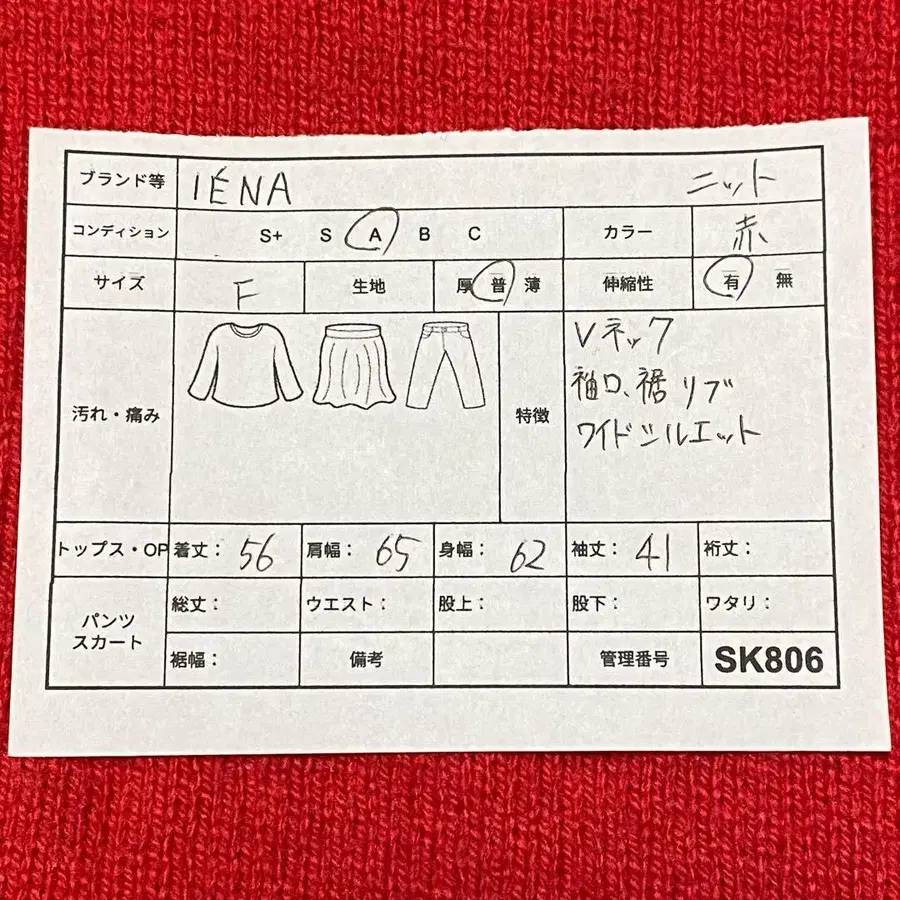 ブランド等 IÉNA ニット
コンディション S+ S A B C カラー 赤
サイズ F 生地 厚 普 薄 伸縮性 有 無
汚れ・痛み 特徴
Vネック
袖口、裾リブ
ワイドシルエット
トップス・OP 着丈： 56 肩幅： 65 身幅： 62 袖丈： 41 裄丈：
パンツ
スカート
総丈： ウエスト： 股上： 股下： ワタリ：
裾幅： 備考 管理番号 SK806